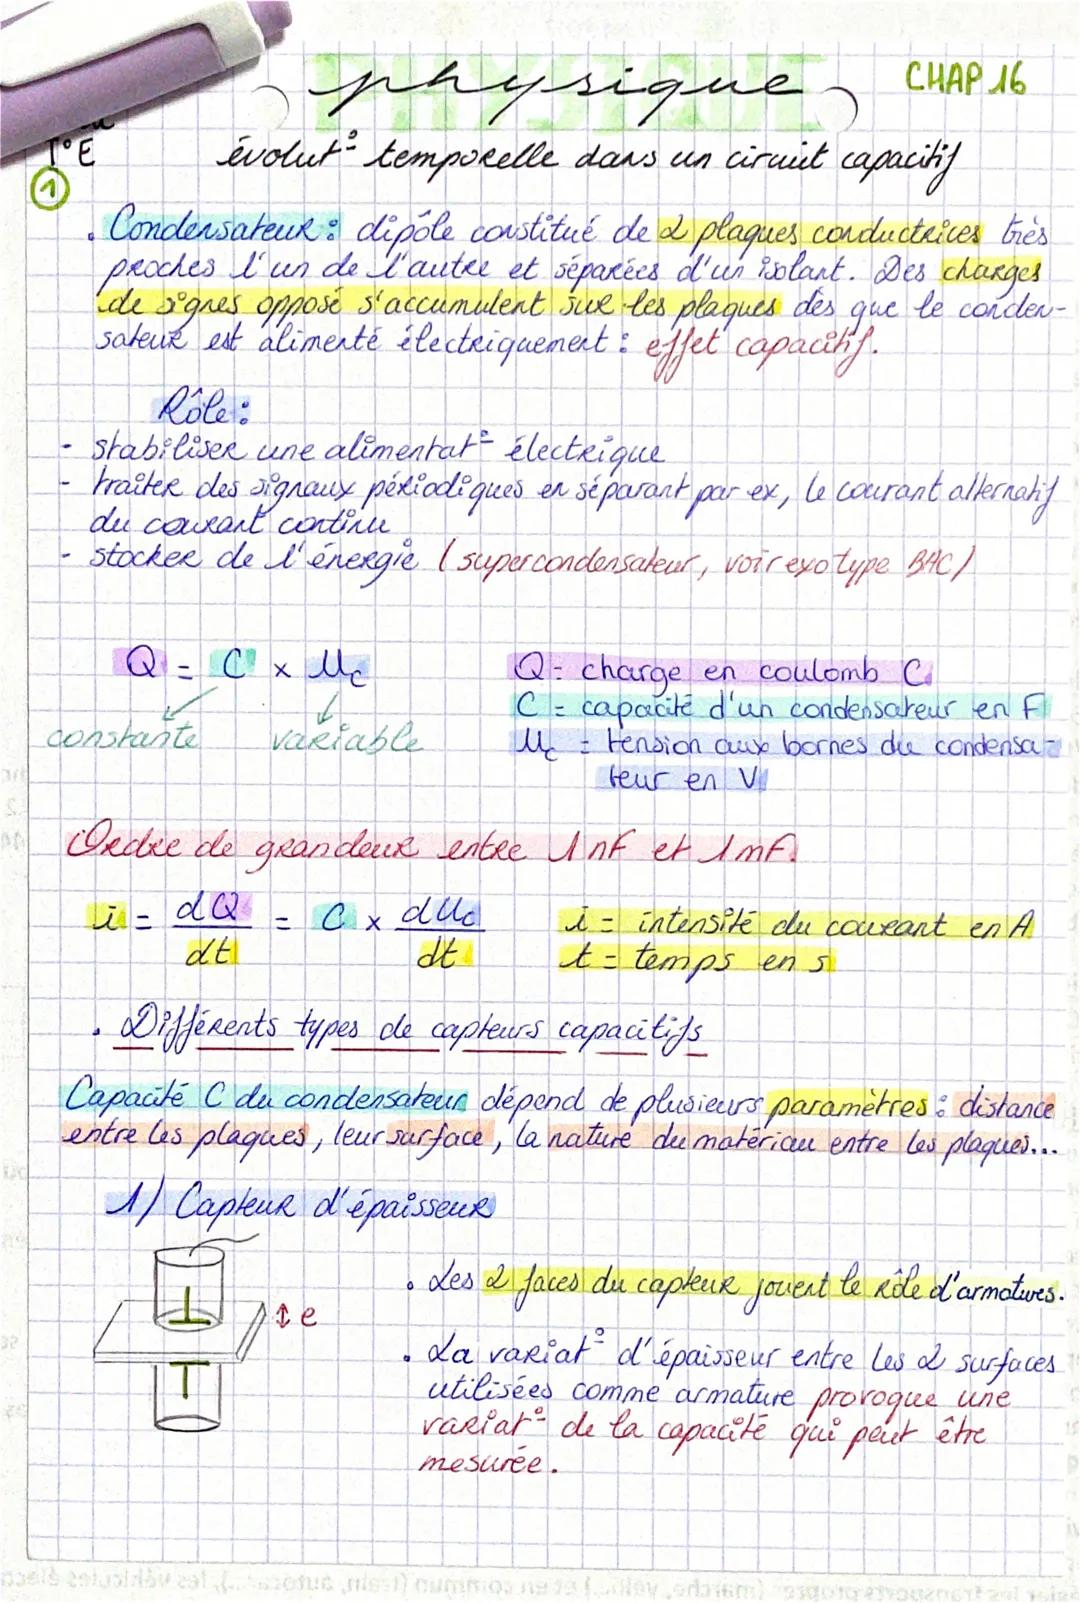 physique
PHYSIQUE
CHAP 16
T°E
évolut° temporelle dans un circuit capacitif
1
. Condensateur : dipôle constitué de 2 plaques conductrices très
proches l'un de l'autre et séparées d'un isolant. Des charges
de signes opposé s'accumulent sur les plaques dès que le conden-
sateur est alimenté électriquement : effet capacitif.
Rôle :
- stabiliser une alimentat° électrique
- traiter des signaux périodiques en séparant par ex, le courant alternatif
du courant continu
- stocker de l'énergie (supercondensateur, voir exo type BAC)
Q = C x Uc
constante variable
Q = charge en coulomb C
C = capacité d'un condensateur en F
Uc = tension aux bornes du condensa-
teur en V
Ordre de grandeur entre 1 nF et 1 mF.
i = dQ/dt = C x dUc/dt
i = intensité du courant en A
t = temps en s
. Différents types de capteurs capacitifs
Capacité C du condensateur dépend de plusieurs paramètres : distance
entre les plaques, leur surface, la nature du matériau entre les plaques...
1) Capteur d'épaisseur
e
. Les 2 faces du capteur jouent le rôle d'armatures.
. La variat° d'épaisseur entre les 2 surfaces
utilisées comme armature provoque une
variat° de la capacité qui peut être
mesurée.